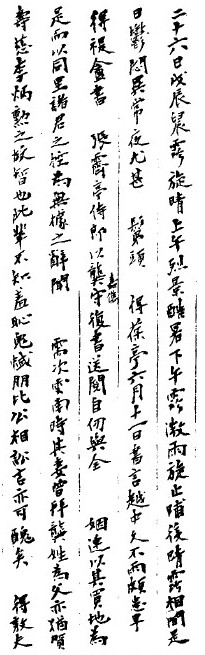 二十六日戊辰晨霒旋晴上午烈景酷暑下午霒微雨旋止晡後晴霒相間是
日鬱悶異常夜尤甚　鬀頭　得葆亭六月十一日書言越中久不雨頗患旱
得禔盦書　張霽亭侍郎以龔嘉儁守復書送閱自仞與余　姻連以其買地為
是而以同里諸君之控為無據之辭聞　需次雲南時其妻曾拜龔姓為父亦循賈
壽慈李炳勳之故智也此輩不知羞恥鬼蜮朋比公相訟言亦可醜矣　得敦夫